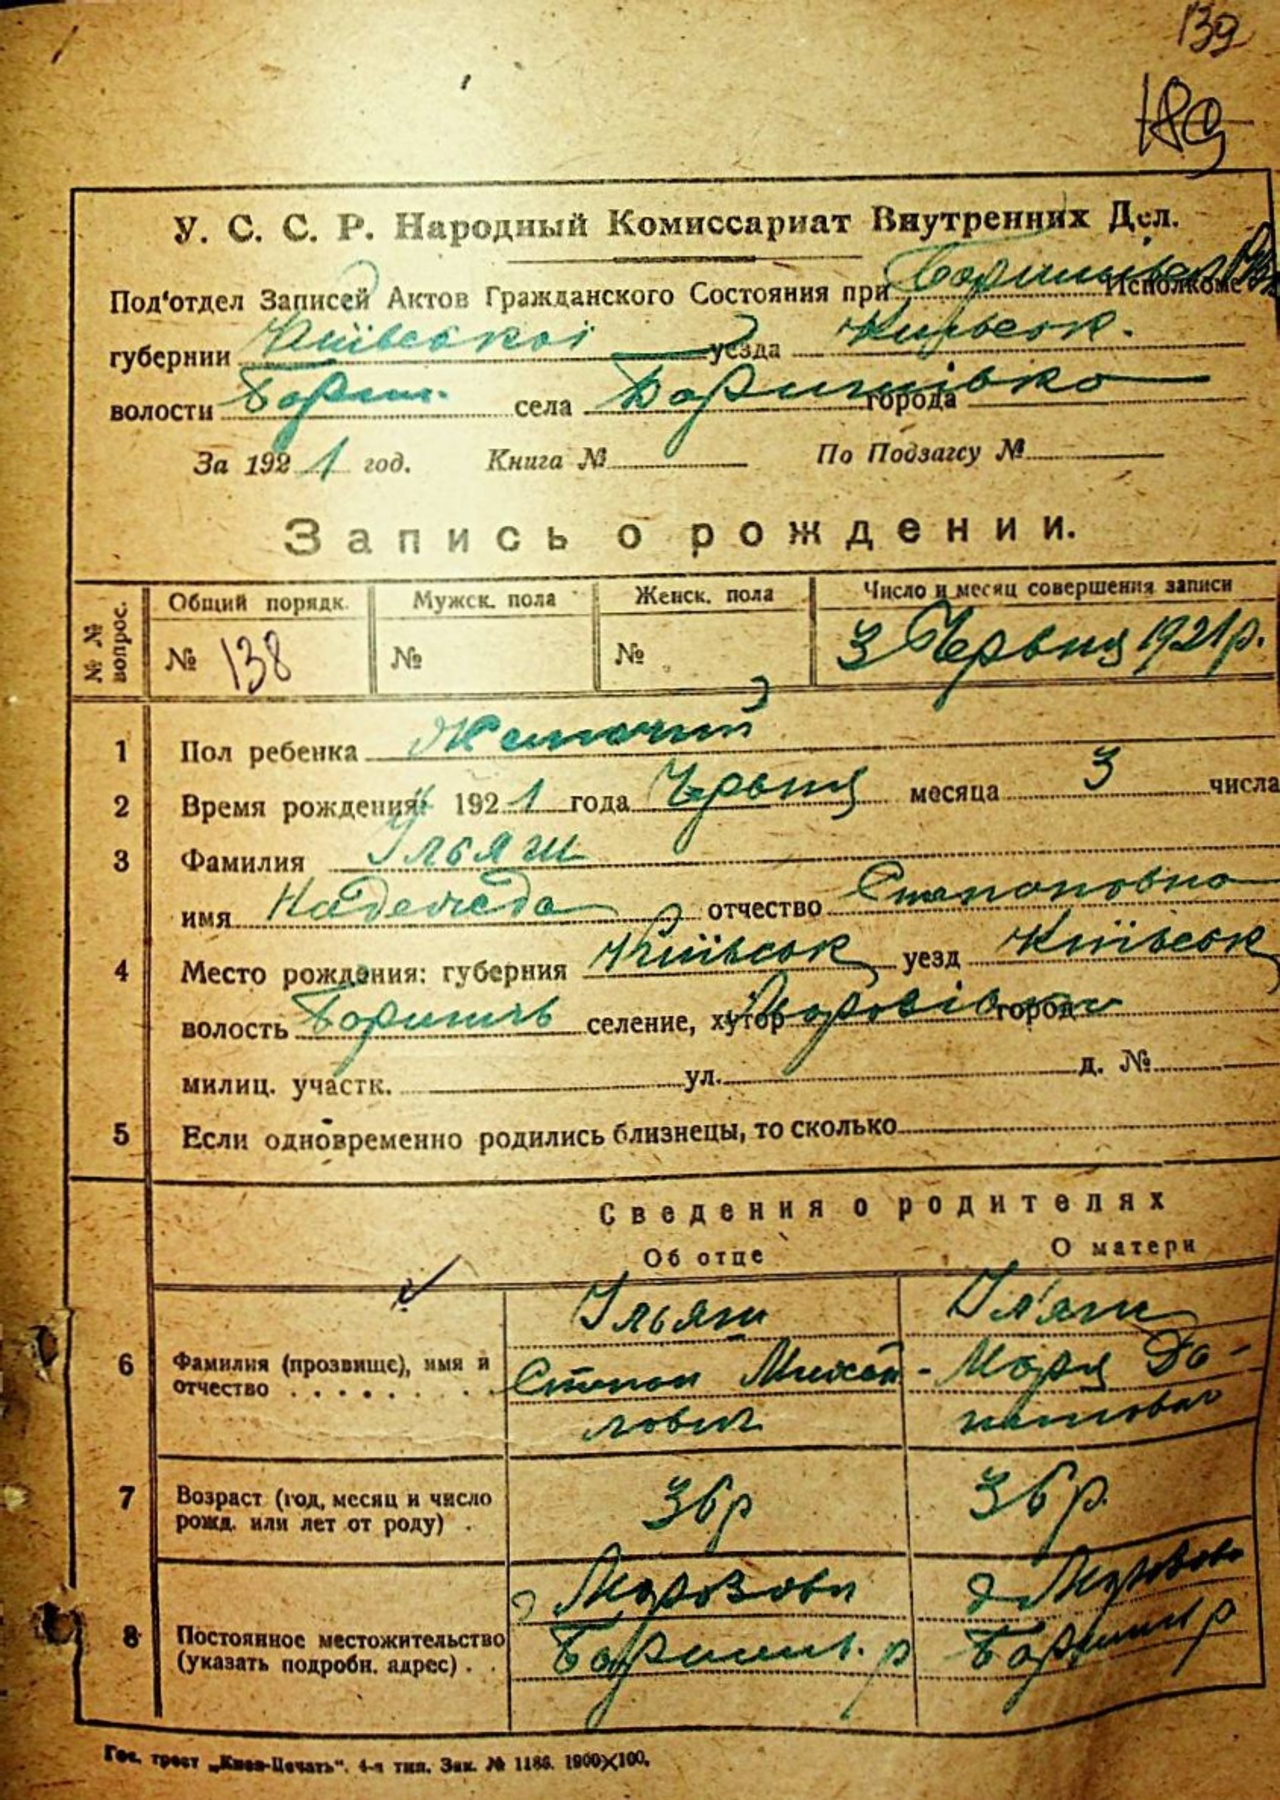 139
189
У. С. С. Р. Народный Комиссариат Внутренних Дел.
Под'отдел Записей Актов Гражданского Состояния при Исполкоме
губернии Київської уезда Київськ.
волости Бориш. села Боришівка города
За 1921 год. Книга № По Подзагсу №
Запись о рождении.
№ № вопрос. Общий порядк. Мужск. пола Женск. пола Число и месяц совершения записи
№ 138 № № 3 Червня 1921 р.
1 Пол ребенка Жиночий
2 Время рождения: 1921 года Червня месяца 3 числа
3 Фамилия Ільяш
имя Надежда отчество Степановна
4 Место рождения: губерния Київськ уезд Київськ
волость селение, хутор город
милиц. участк. ул. д. №
5 Если одновременно родились близнецы, то сколько
Сведения о родителях
Об отце О матери
Ільяш Іл'яш
6 Фамилия (прозвище), имя и отчество Степан Михай- Марія
лович
7 Возраст (год, месяц и число рожд. или лет от роду) 36 р 36 р.
8 Постоянное местожительство (указать подробн. адрес)
Гос. трест „Киев-Печать“. 4-я тип. Зак. № 1186. 1900×100.